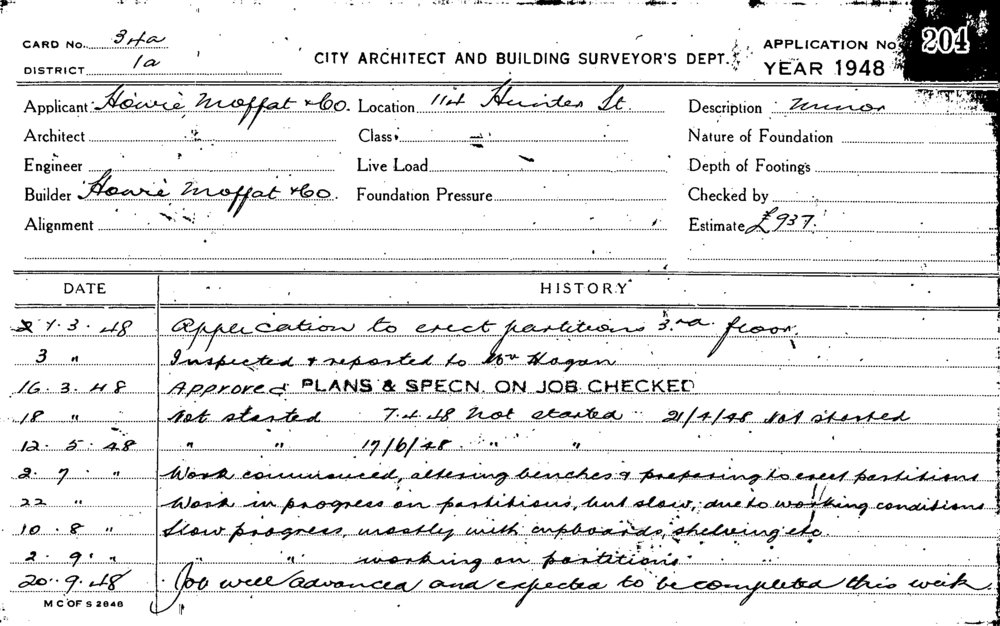 CARD No. 34a
DISTRICT 1a
CITY ARCHITECT AND BUILDING SURVEYOR'S DEPT.
APPLICATION No 204
YEAR 1948
Applicant Howie Moffat & Co. Location 114 Hunter St. Description minor
Architect Class Nature of Foundation
Engineer Live Load Depth of Footings
Builder Howie Moffat & Co. Foundation Pressure Checked by
Alignment Estimate £937.
DATE HISTORY
1.3.48 Application to erect partitions 3rd floor.
3 " Inspected & reported to Mr Hogan
16.3.48 Approved PLANS & SPECN. ON JOB CHECKED
18 " Not started 7.4.48 Not started 21/4/48 Not started
12.5.48 " " 17/6/48 " "
2.7 " Work commenced, altering benches & preparing to erect partitions
22 " Work in progress on partitions, but slow, due to working conditions
10.8 " Slow progress, mostly with cupboards, shelving etc.
2.9 " " " working on partitions
20.9.48 Job well advanced and expected to be completed this week
M C OF S 2848